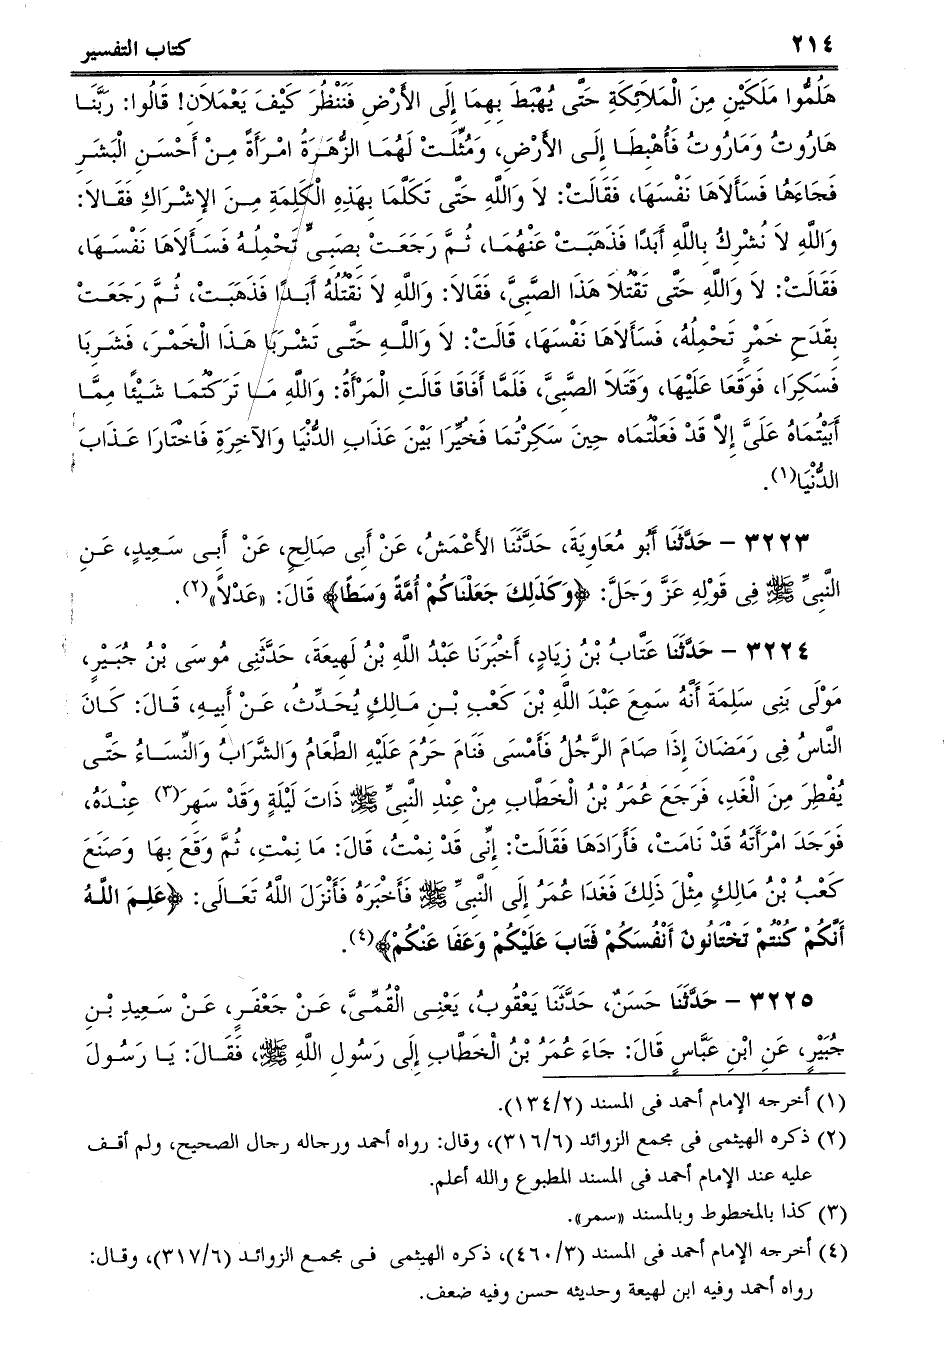 ٢١٤
كتاب التفسير
هَلُمُّوا مَلَكَيْنِ مِنَ الْمَلَائِكَةِ حَتَّى يُهْبَطَ بِهِمَا إِلَى الأَرْضِ فَنَنْظُرَ كَيْفَ يَعْمَلاَنِ! قَالُوا: رَبَّنَا
هَارُوتُ وَمَارُوتُ فَأُهْبِطَا إِلَى الأَرْضِ، وَمُثِّلَتْ لَهُمَا الزُّهَرَةُ امْرَأَةً مِنْ أَحْسَنِ الْبَشَرِ
فَجَاءَهَا فَسَأَلاَهَا نَفْسَهَا، فَقَالَتْ: لاَ وَاللَّهِ حَتَّى تَكَلَّمَا بِهَذِهِ الْكَلِمَةِ مِنَ الإِشْرَاكِ فَقَالاَ:
وَاللَّهِ لاَ نُشْرِكُ بِاللَّهِ أَبَدًا فَذَهَبَتْ عَنْهُمَا، ثُمَّ رَجَعَتْ بِصَبِىٍّ تَحْمِلُهُ فَسَأَلاَهَا نَفْسَهَا،
فَقَالَتْ: لاَ وَاللَّهِ حَتَّى تَقْتُلاَ هَذَا الصَّبِىَّ، فَقَالاَ: وَاللَّهِ لاَ نَقْتُلُهُ أَبَدًا فَذَهَبَتْ، ثُمَّ رَجَعَتْ
بِقَدَحِ خَمْرٍ تَحْمِلُهُ، فَسَأَلاَهَا نَفْسَهَا، قَالَتْ: لاَ وَاللَّهِ حَتَّى تَشْرَبَا هَذَا الْخَمْرَ، فَشَرِبَا
فَسَكِرَا، فَوَقَعَا عَلَيْهَا، وَقَتَلاَ الصَّبِىَّ، فَلَمَّا أَفَاقَا قَالَتِ الْمَرْأَةُ: وَاللَّهِ مَا تَرَكْتُمَا شَيْئًا مِمَّا
أَبَيْتُمَاهُ عَلَىَّ إِلاَّ قَدْ فَعَلْتُمَاه حِينَ سَكِرْتُمَا فَخُيِّرَا بَيْنَ عَذَابِ الدُّنْيَا وَالآخِرَةِ فَاخْتَارَا عَذَابَ
الدُّنْيَا(١).
٣٢٢٣ – حَدَّثَنَا أَبُو مُعَاوِيَةَ، حَدَّثَنَا الأَعْمَشُ، عَنْ أَبِى صَالِحٍ، عَنْ أَبِى سَعِيدٍ، عَنِ
النَّبِىِّ ﷺ فِى قَوْلِهِ عَزَّ وَجَلَّ: ﴿وَكَذَلِكَ جَعَلْنَاكُمْ أُمَّةً وَسَطًا﴾ قَالَ: «عَدْلاً»(٢).
٣٢٢٤ – حَدَّثَنَا عَتَّابُ بْنُ زِيَادٍ، أَخْبَرَنَا عَبْدُ اللَّهِ بْنُ لَهِيعَةَ، حَدَّثَنِى مُوسَى بْنُ جُبَيْرٍ،
مَوْلَى بَنِى سَلِمَةَ أَنَّهُ سَمِعَ عَبْدَ اللَّهِ بْنَ كَعْبِ بْنِ مَالِكٍ يُحَدِّثُ، عَنْ أَبِيهِ، قَالَ: كَانَ
النَّاسُ فِى رَمَضَانَ إِذَا صَامَ الرَّجُلُ فَأَمْسَى فَنَامَ حَرُمَ عَلَيْهِ الطَّعَامُ وَالشَّرَابُ وَالنِّسَاءُ حَتَّى
يُفْطِرَ مِنَ الْغَدِ، فَرَجَعَ عُمَرُ بْنُ الْخَطَّابِ مِنْ عِنْدِ النَّبِىِّ ﷺ ذَاتَ لَيْلَةٍ وَقَدْ سَهِرَ(٣) عِنْدَهُ،
فَوَجَدَ امْرَأَتَهُ قَدْ نَامَتْ، فَأَرَادَهَا فَقَالَتْ: إِنِّى قَدْ نِمْتُ، قَالَ: مَا نِمْتِ، ثُمَّ وَقَعَ بِهَا وَصَنَعَ
كَعْبُ بْنُ مَالِكٍ مِثْلَ ذَلِكَ فَغَدَا عُمَرُ إِلَى النَّبِىِّ ﷺ فَأَخْبَرَهُ فَأَنْزَلَ اللَّهُ تَعَالَى: ﴿عَلِمَ اللَّهُ
أَنَّكُمْ كُنْتُمْ تَخْتَانُونَ أَنْفُسَكُمْ فَتَابَ عَلَيْكُمْ وَعَفَا عَنْكُمْ﴾(٤).
٣٢٢٥ – حَدَّثَنَا حَسَنٌ، حَدَّثَنَا يَعْقُوبُ، يَعْنِى الْقُمِّىَّ، عَنْ جَعْفَرٍ، عَنْ سَعِيدِ بْنِ
جُبَيْرٍ، عَنِ ابْنِ عَبَّاسٍ قَالَ: جَاءَ عُمَرُ بْنُ الْخَطَّابِ إِلَى رَسُولِ اللَّهِ ﷺ، فَقَالَ: يَا رَسُولَ
(١) أخرجه الإمام أحمد فى المسند (١٣٤/٢).
(٢) ذكره الهيثمى فى مجمع الزوائد (٣١٦/٦)، وقال: رواه أحمد ورجاله رجال الصحيح، ولم أقف
عليه عند الإمام أحمد فى المسند المطبوع والله أعلم.
(٣) كذا بالمخطوط وبالمسند «سمر».
(٤) أخرجه الإمام أحمد فى المسند (٤٦٠/٣)، ذكره الهيثمى فى مجمع الزوائد (٣١٧/٦)، وقال:
رواه أحمد وفيه ابن لهيعة وحديثه حسن وفيه ضعف.